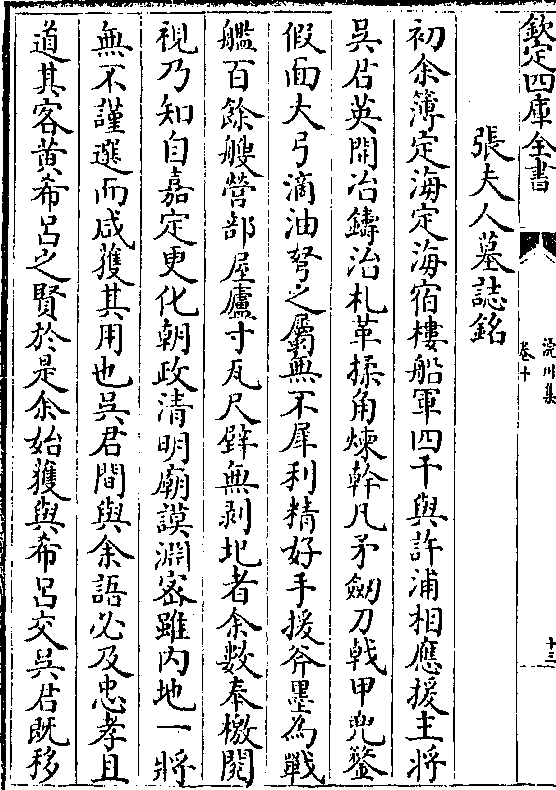 欽定四庫全書
浣川集
卷十
十三
張夫人墓誌銘
初余簿定海定海宿樓船軍四千與許浦相應援主將
吳君英開冶鑄治札革揉角煉幹凡矛劒刀戟甲兜鍪
假面大弓滴油弩之屬無不犀利精好手援斧墨為戰
艦百餘艘營部屋廬寸瓦尺甓無剥圯者余數奉檄閲
視乃知自嘉定更化朝政清明廟謨淵宻雖内地一將
無不謹選而咸獲其用也吳君間與余語必及忠孝且
道其客黄希呂之賢於是余始獲與希呂交吳君既移